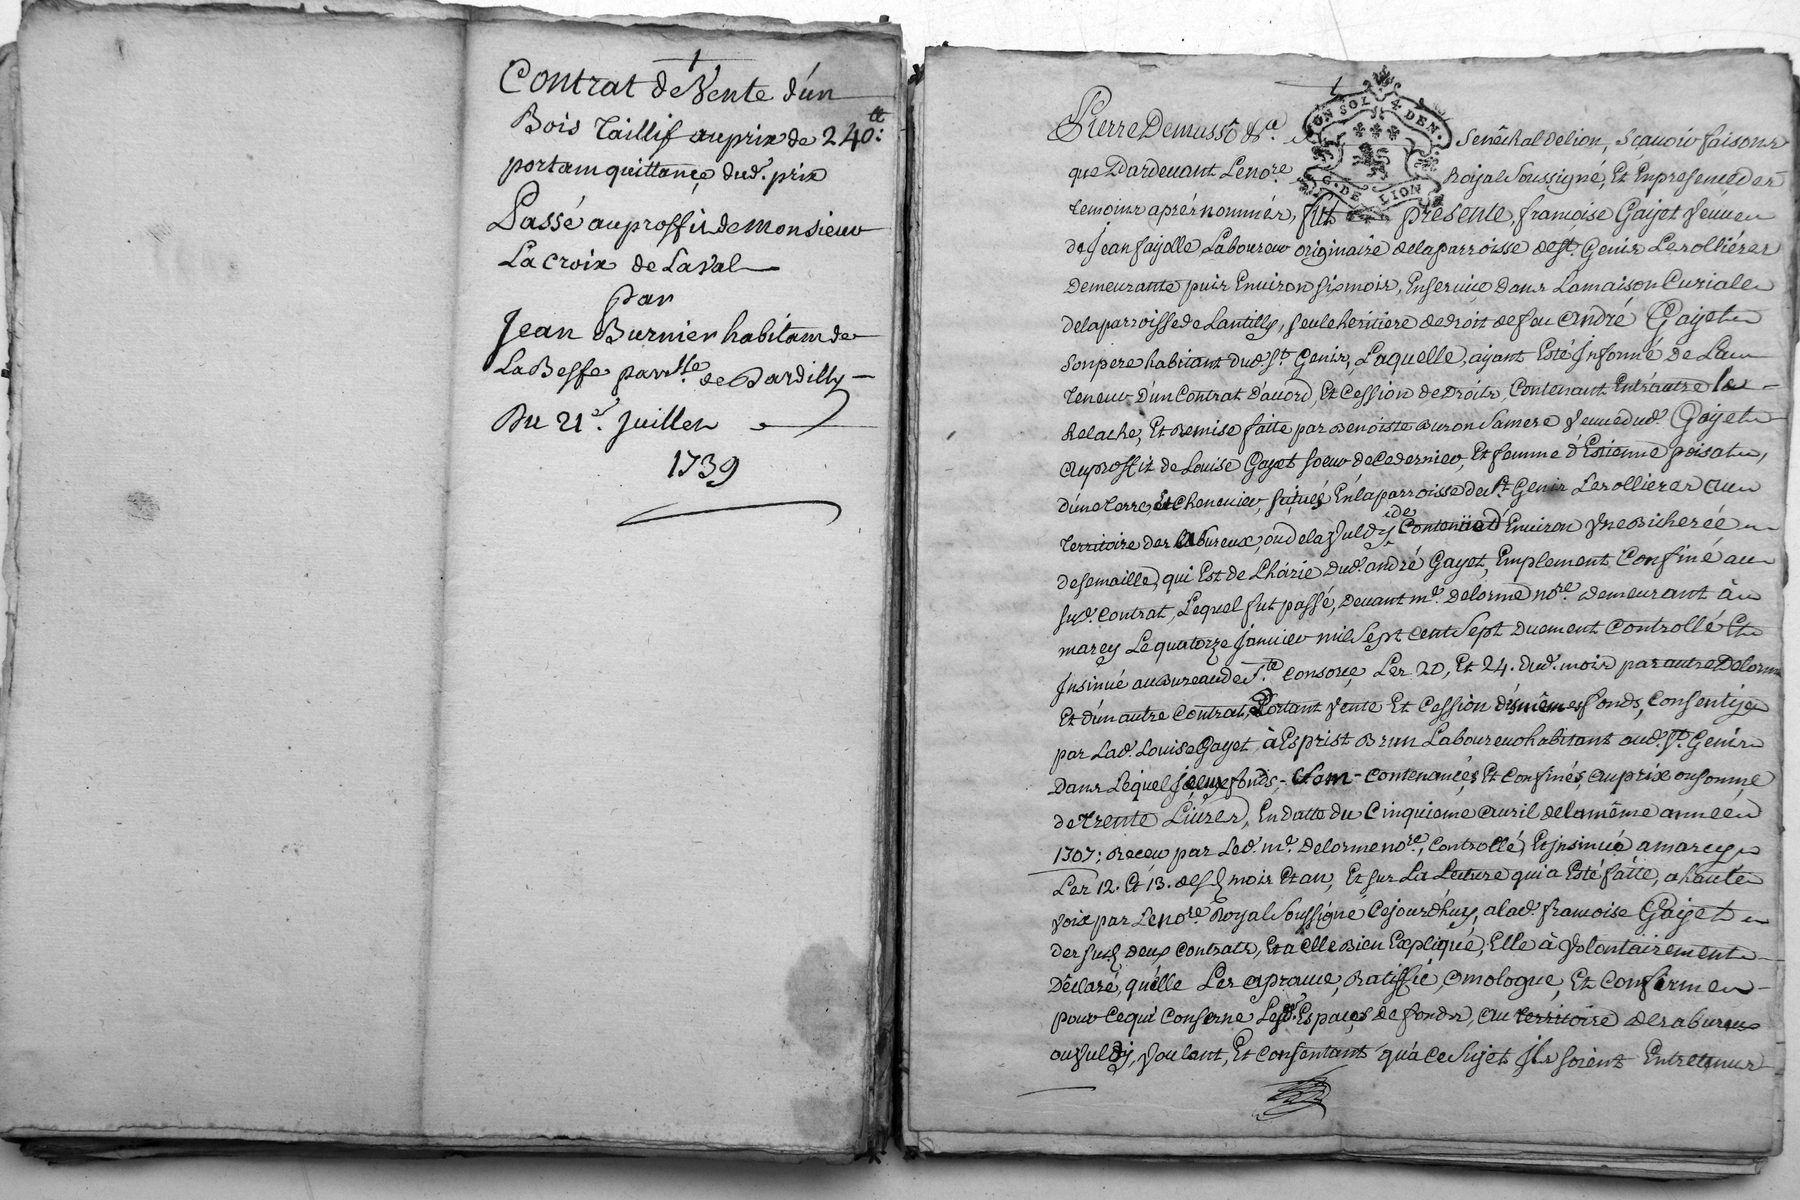 Contrat de Vente d'un
Bois Taillif au prix de 240:tt
portam quittance dud. prix
Passé au proffit de Monsieur
La Croix de Laval
par
Jean Burnier habitam de
La Beffe parr.lle de Dardilly
Du 21e. Juillet
1739
Pierre Demusso &a. Senêchal de lion, Sçavoir faisons
que Pardevant Le nore. Roÿal Soussigné, Et En presence des
temoins aprés nommés, fut présente, francoise Gaÿet veuve
de Jean fayolle Laboureur originaire de la parroisse de St. Genis Lesolliéres
Demeurante puis Environ six mois, En service dans La maison Curiale
de la parroisse de Lantilly, seule heritiere de droit de feu André Gaÿet
Son pere habitant dud. St. Genis, Laquelle, aÿant Esté Informé de La
teneur d'un Contrat d'acord, Et Cession de droits, Contenant Entr'autre le
Relache, Et Remise faite par Benoiste Buron Sa mere veuve dud. Gaÿet
au proffit de Louise Gayet soeur de ce dernier, Et femme d'Estienne poisat,
d'une terre, Et Chenevier, situés En la parroisse du St. Genis Lesollieres au
territoire des abureux, ou de la Vuldÿ, de Contenüe d'Environ Une Bicherée
de semaille, qui Est de L'hoirie dud. andré Gayet, Emplement Confiné au
sud. Contrat, Lequel fut passé, Devant me. Delorme nore. demeurant à
marcy Le quatorze Janvier mil Sept cent Sept Duement Controllé Et
Insinué au Bureau de Ste. Consorce Les 20, Et 24. dud. mois par autre Delorme
Et d'un autre Contrat, Portant Vente Et Cession des mêmes fonds, Consentÿe
par Lad. Louise Gayet à Esprist Brun Laboureur habitant aud. St. Genis
Dans Lequel Iceux fonds, Sont contenancés, Et Confinés, au prix ou somme
de Trente Livres, En datte du Cinquieme avril de la même année
1707; Receu par Led. me. Delorme nore., Controllé, Et Insinué a marcy
Les 12. Et 13. desd. mois Et an, Et sur La Lecture qui a Esté faite, a haute
voix par Le nore. Royal Soussigné Cejourd'huy, a lad. francoise Gaÿet
des susd. deux Contrats, Et a Elle Bien Expliqué, Elle à Volontairement
Déclaré, qu'elle Les aprouve, Ratiffié, omologue, Et Confirme
pour Ce qui Conserne Lesd. Espaces de fonds, au territoire des abureux
ou Vuldÿ, Voulant, Et Consentant qu'a Ce Sujet Ils soient Entretenus
ON SOL 4. DEN.
G. DE LION